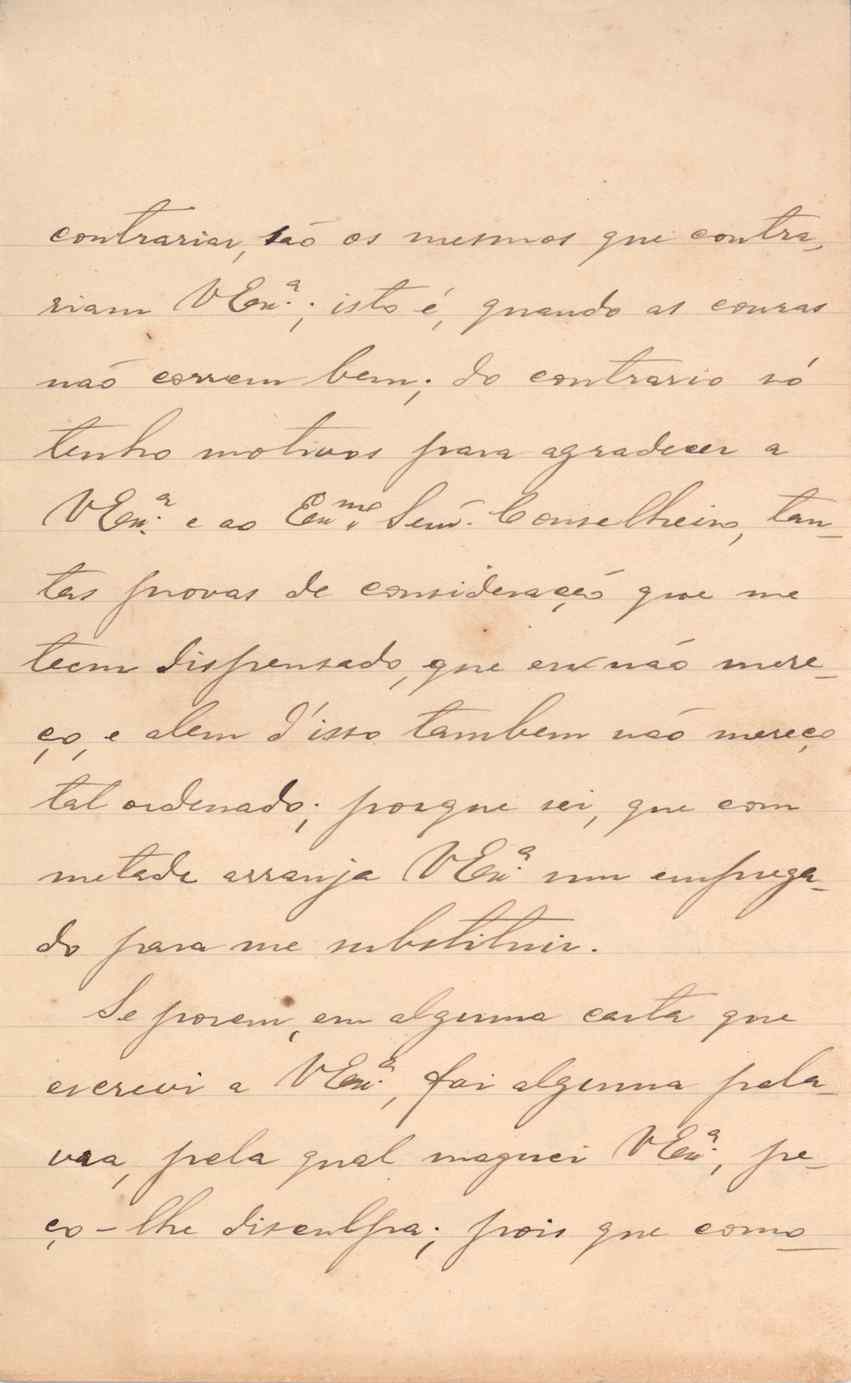 contrariar, são os mesmos que contra-
riam V Ex.ª; isto é, quando as cousas
não correm bem; do contrario só
tenho motivos para agradecer a
V Ex.ª e ao Ex.mo Senr. Conselheiro, tan-
tas provas de consideração que me
teem dispensado, que eu não mere-
ço, e alem d'isso tambem não mereço
tal ordenado; porque sei, que com
metade arranja V Ex.ª um emprega-
do para me substituir.
Se porem, em alguma carta que
escrevi a V Ex.ª, foi alguma pala-
vra, pela qual maguei V Ex.ª, pe-
ço-lhe disculpa; pois que como